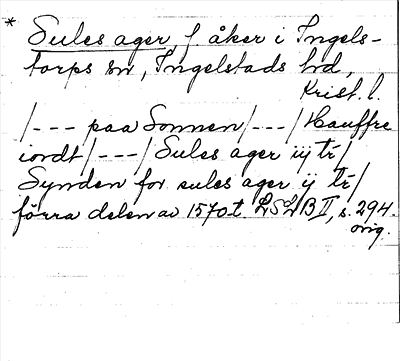 * Sules ager f åker i Ingels-
torps sn, Ingelstads hd,
Krist. l.
/--- paa Sonnen/---/Hauffre
iordt/---/Sules ager iij tr/
Synden for sules ager ij tr/
förra delen av 1570.t LSLB II, s. 294.
orig.